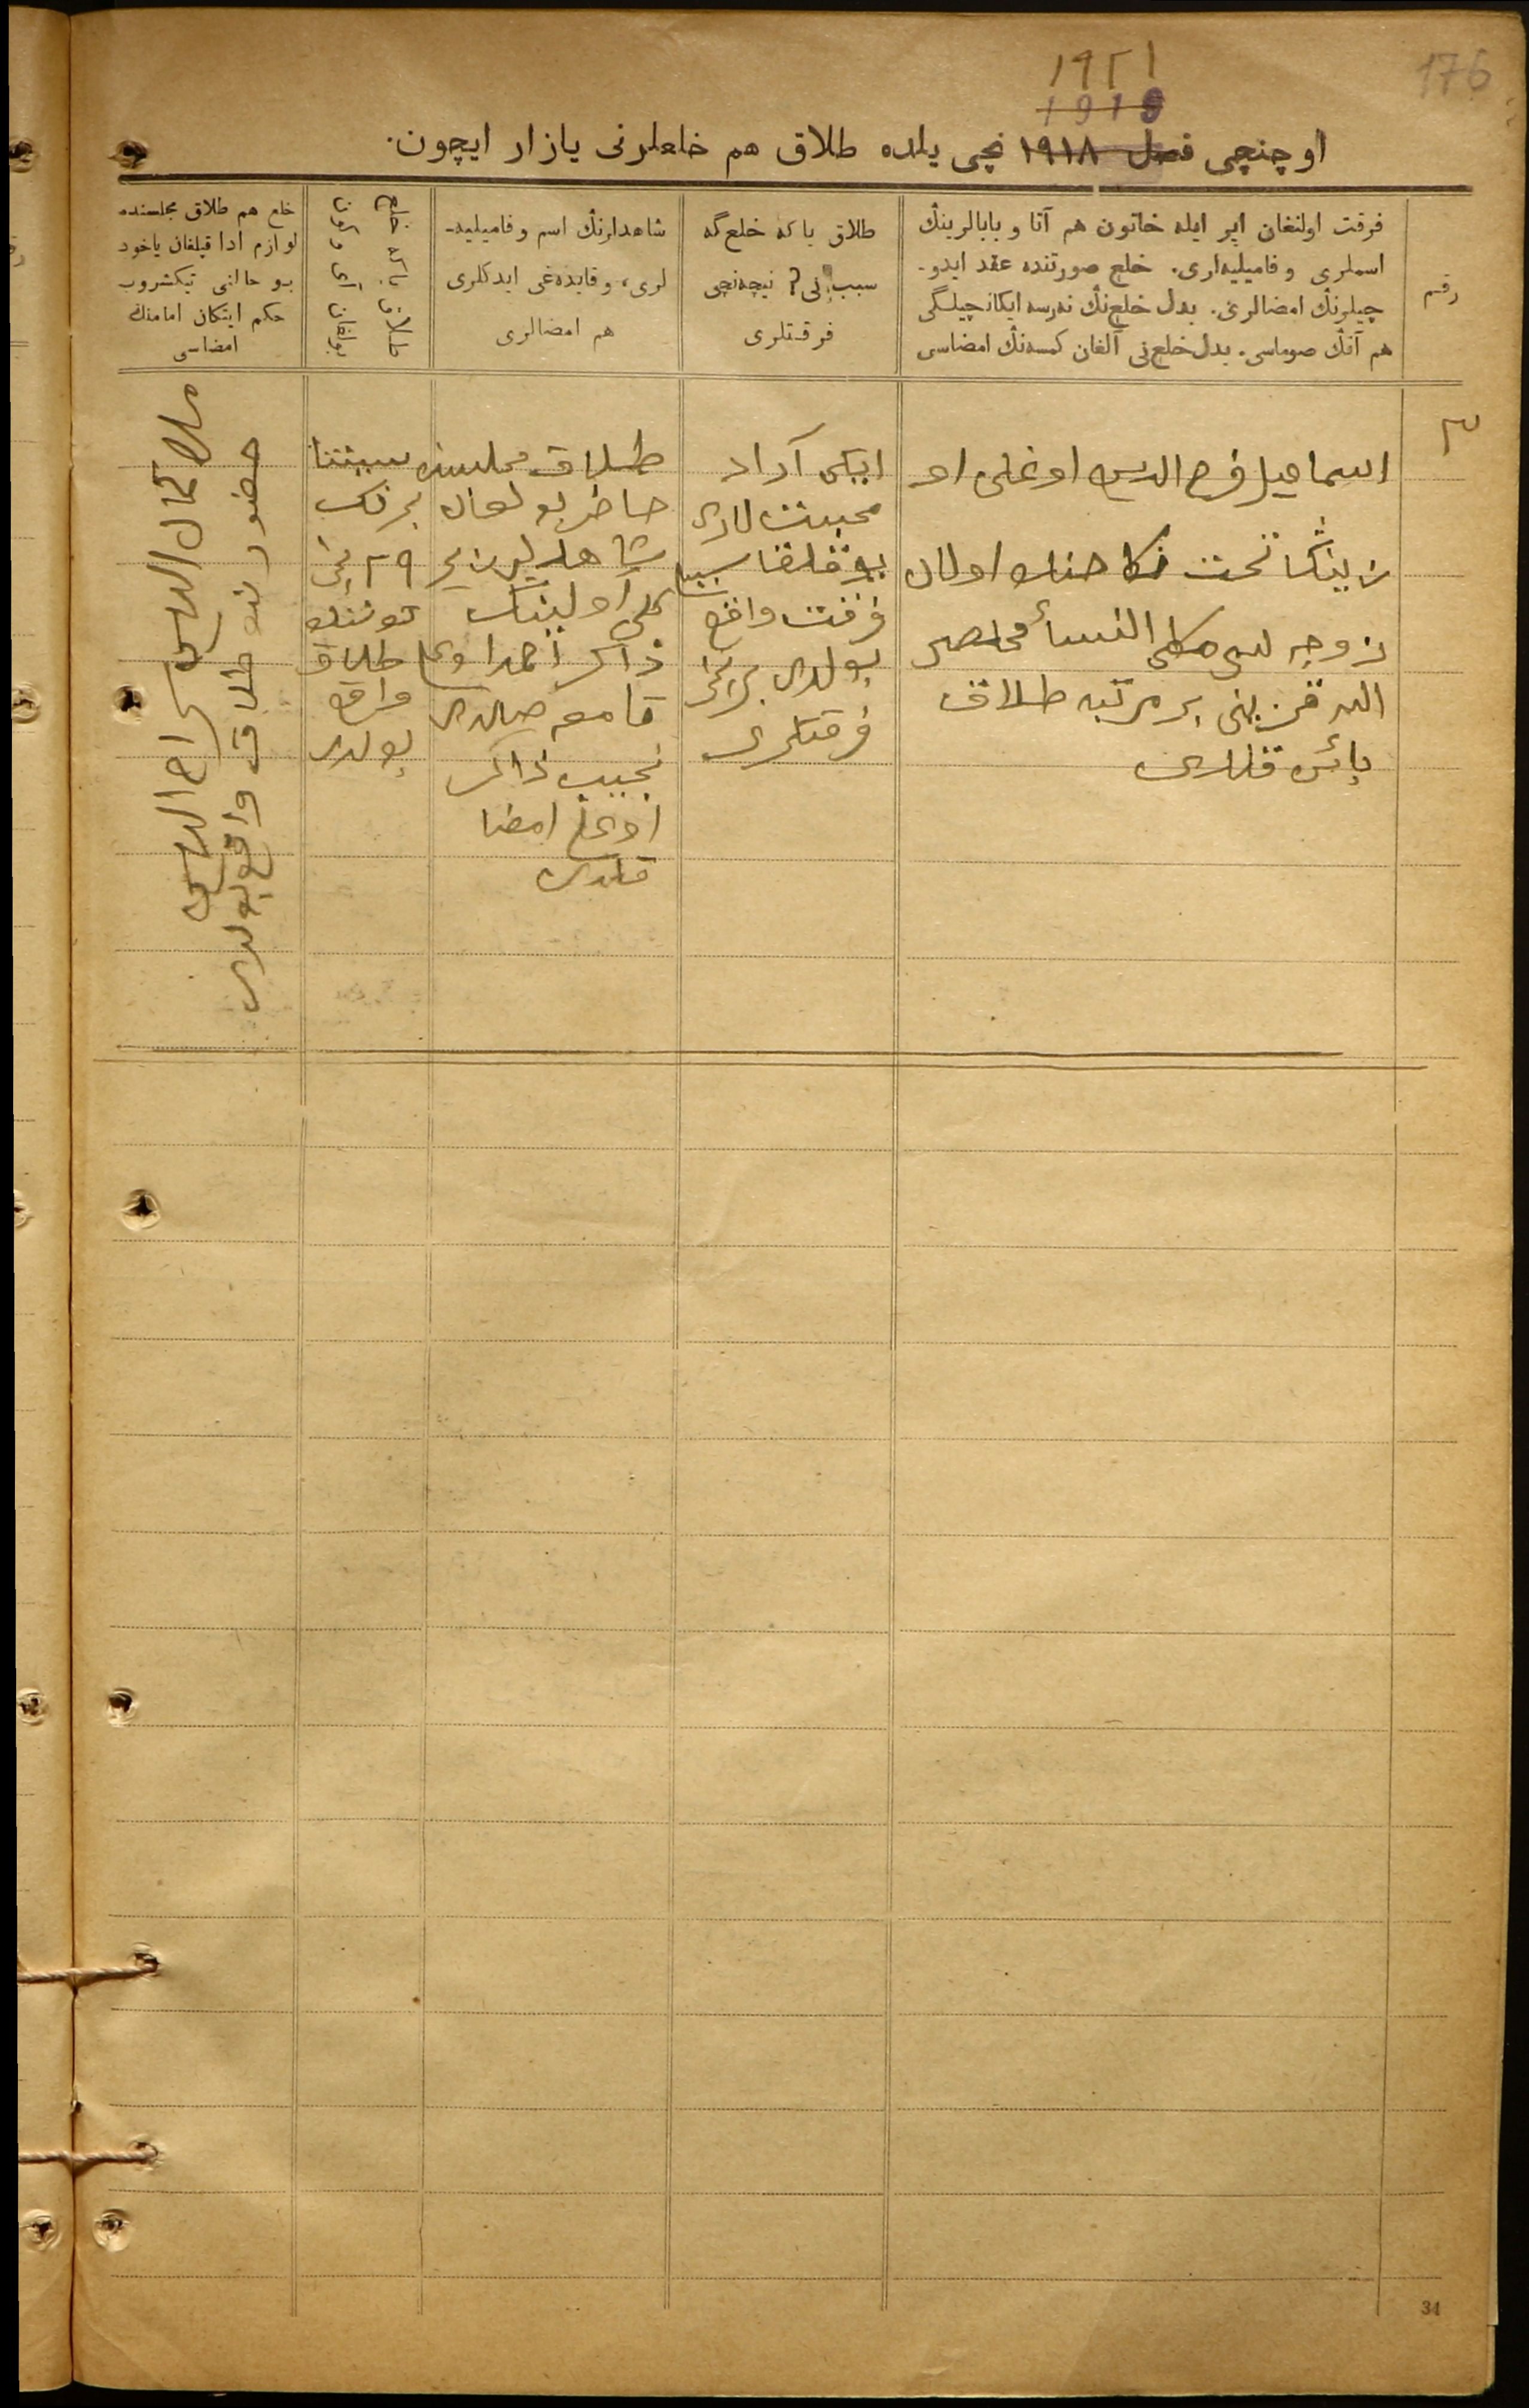 176
١٩٢١
1919
اوچنچی فصل ١٩١٨ نچی یلده طلاق هم خلعلرنی یازار ایچون.
رقم
فرقت اولنغان ایر ایله خاتون هم آتا و بابالرینڭ
اسملری و فامیلیه‌لری. خلع صورتنده عقد ایدو-
چیلرنڭ امضالری. بدل خلع‌نڭ نەرسه ایکانچیلگی
هم آنڭ صوماسی. بدل خلع‌نی آلغان کمسه‌نڭ امضاسی
طلاق یاکه خلع گه
سبب نی؟ نیچه‌نچی
فرقتلری
شاهدلرنڭ اسم و فامیلیه-
لری، و قایده‌غی ایدکلری
هم امضالری
خلع هم طلاق مجلسنده
لوازم ادا قیلغان یاخود
بو حالنی تیکشروب
حکم ایتکان امامنڭ
امضاسی
٣
اسماعیل فرح الدین اوغلی او
زینڭ تحت نکاحنده اولان
زوجه سی النسأ
قزینی بر مرتبه طلاق
بائن قلدی
ایکی آراد
محبت لاری
یوقلقا سببلی
فرقت واقع
بولدی برنچی
فرقتلری
طلاق مجلسنده
حاضر بولغان
شاهدلرنڭ
ذاکر احمد اوغلی
صالدی
نجیب ذاکر
اوغلی امضا
قلدی
٢٩ نچی
طلاق
واقع
بولدی
ملا کمال الدین سراج الدین
حضورنده طلاق واقع بولدی
31